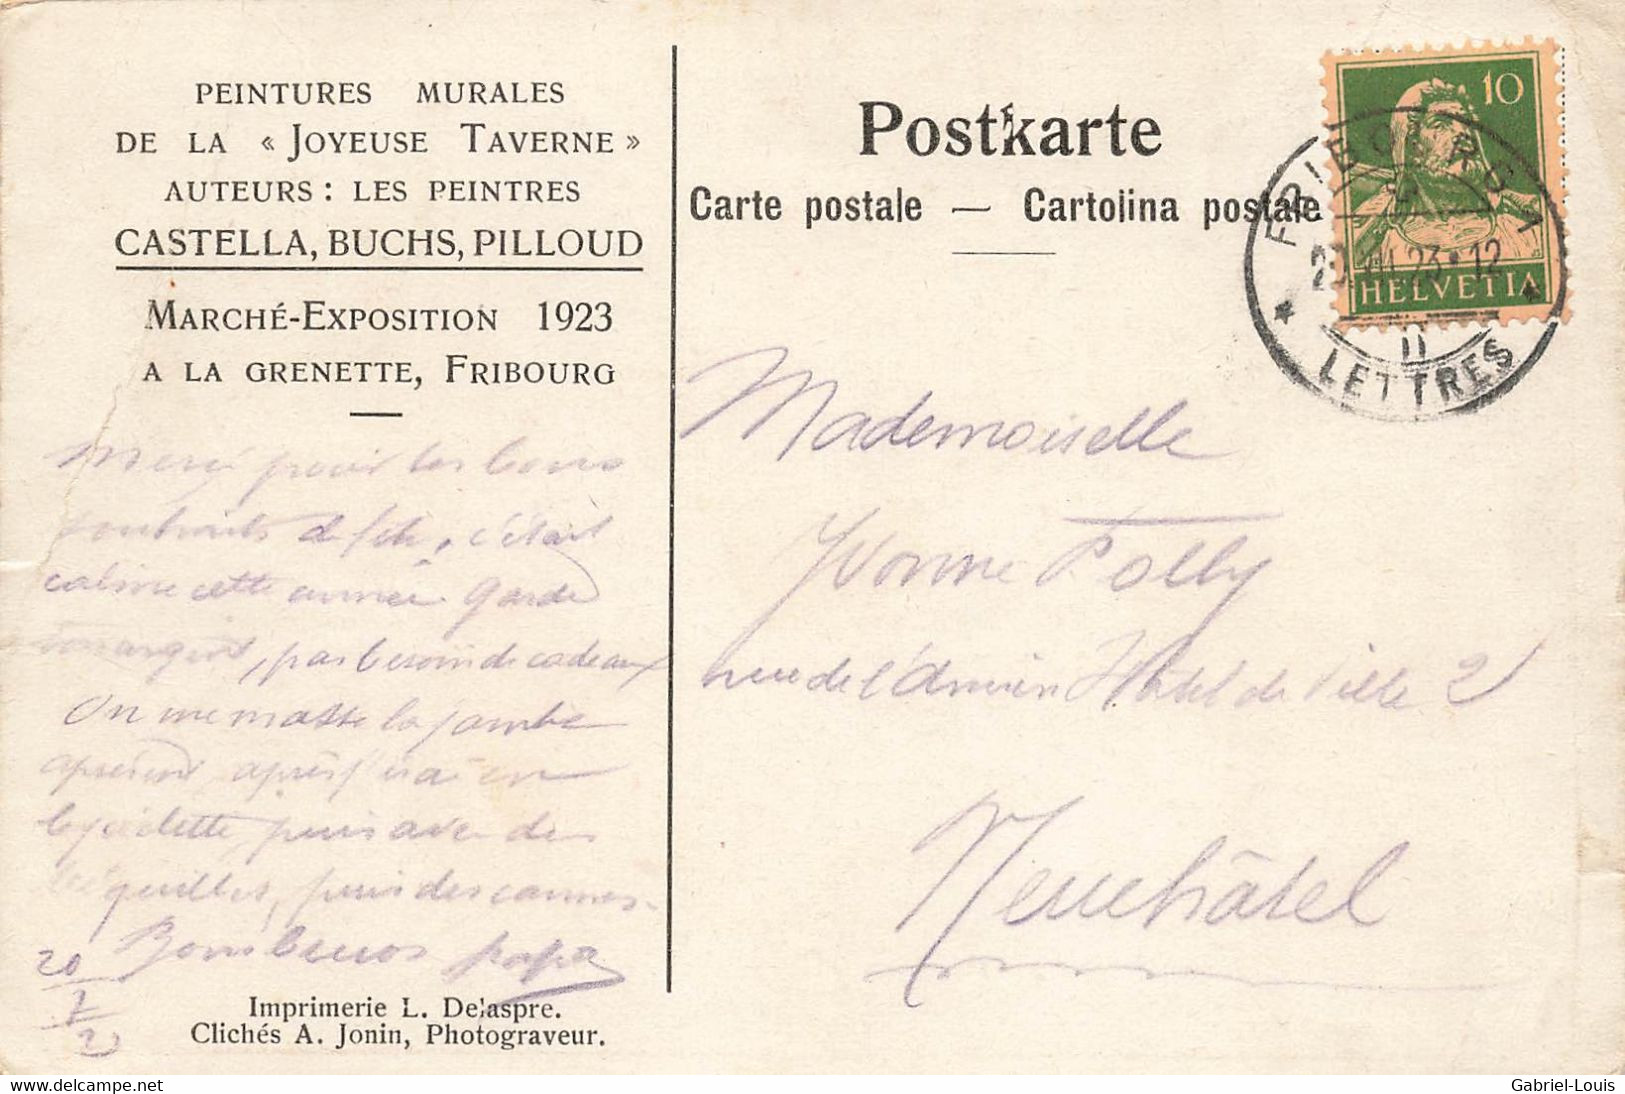 PEINTURES MURALES
DE LA « JOYEUSE TAVERNE »
AUTEURS : LES PEINTRES
CASTELLA, BUCHS, PILLOUD
MARCHÉ-EXPOSITION 1923
A LA GRENETTE, FRIBOURG
Merci pour les bons
souhaits de fête, c'était
calme cette année Garde
ton argent, pas besoin de cadeaux
On me masse la jambe
à présent, après j'irai en
puis avec des
béquilles, puis des cannes.
Bons becos papa
20
Imprimerie L. Delaspre.
Clichés A. Jonin, Photograveur.
Postkarte
Carte postale — Cartolina postale
10
HELVETIA
FRIBOURG 1
LETTRES
Mademoiselle
Yvonne Folly
rue de l'Ancien Hôtel de Ville 2
Neuchâtel
www.delcampe.net
Gabriel-Louis